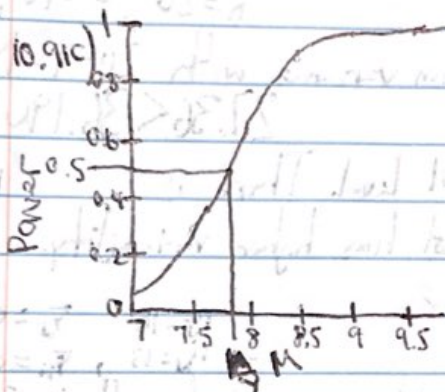 10.91c)
1
0.8
0.6
0.5
0.4
0.2
0
Power
7 7.5 8 8.5 9 9.5
M